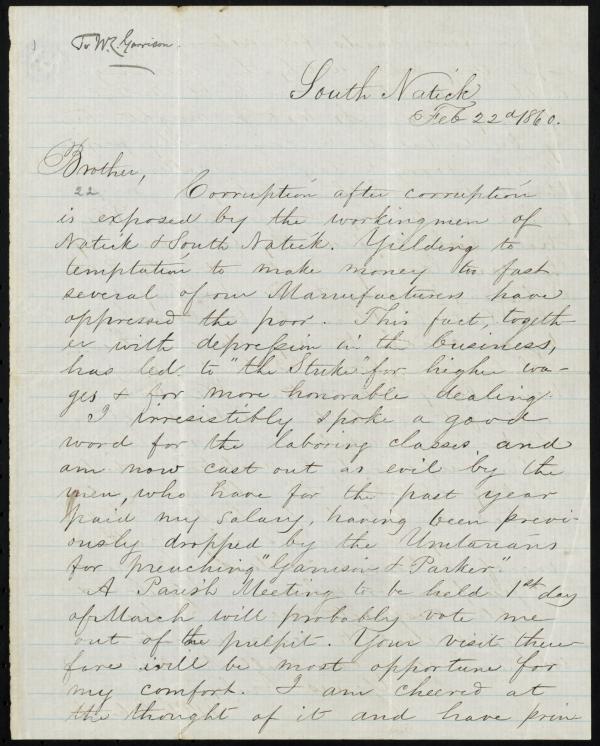 To W. L. Garrison.
South Natick
Feb 22d 1860.
Brother,
22
Corruption after corruption
is exposed by the workingmen of
Natick & South Natick. Yielding to
temptation to make money too fast
several of our Manufacturers have
oppressed the poor. This fact, togeth-
er with depression in the business,
has led to "the Strike" for higher wa-
ges & for more honorable dealing.
I irresistibly spoke a good
word for the laboring classes and
am now cast out as evil by the
men, who have for the past year
paid my salary, having been previ-
ously dropped by the Unitarians
for preaching "Garrison & Parker."
A Parish Meeting to be held 1st day
of March will probably vote me
out of the pulpit. Your visit there-
fore will be most opportune for
my comfort. I am cheered at
the thought of it and have prin